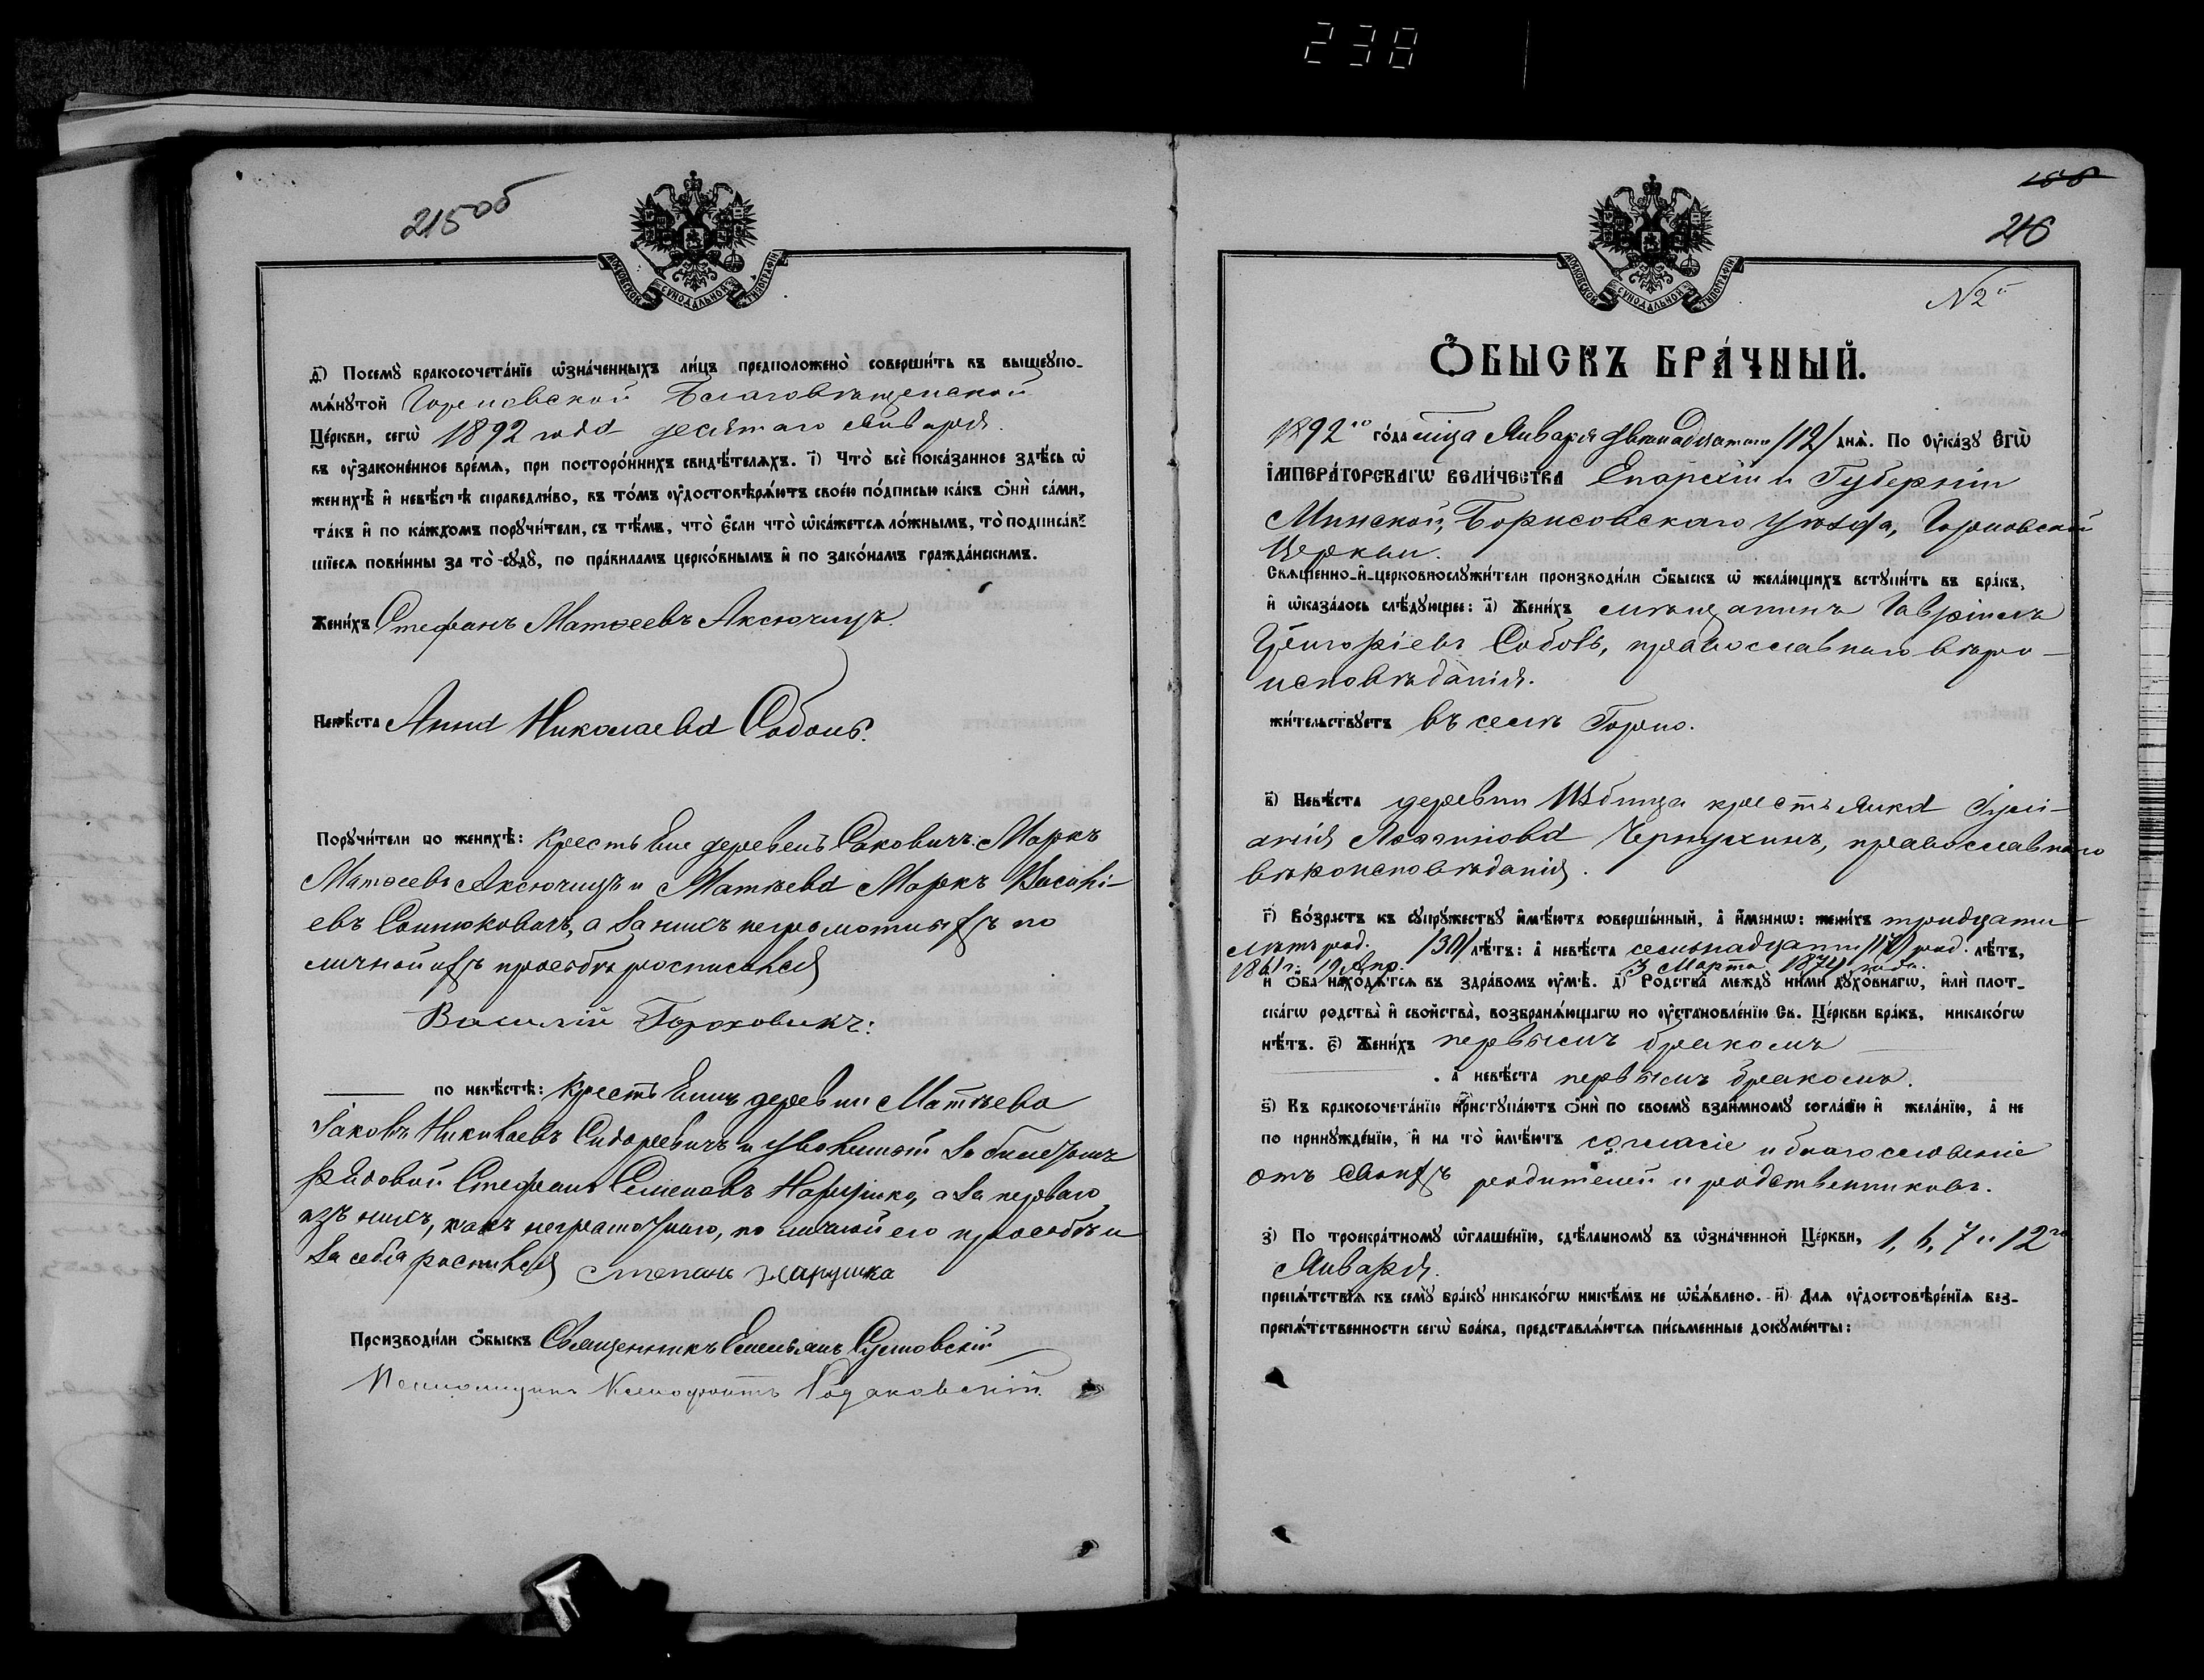 238
215об
МОСКОВСКОЙ СѴНОДАЛЬНОЙ ТИПОГРАФІИ
д҃) Посемꙋ̀ бракосочета́нїе ѡ҆зна́ченныхъ ли́цъ предположено̀ соверши́ть въ вышеꙋпо-
мѧ́нꙋтой Горновской Благовѣщенской
Це́ркви, сегѡ̀ 1892 года десятаго Января.
въ ᲂу҆зако́ненное вре́мѧ, при посторо́ннихъ свидѣ́телѧхъ. і҃) Что̀ всѐ пока́занное здѣ́сь ѡ҆
женихѣ̀ и҆ невѣ́стѣ справедли́во, въ то́мъ ᲂу҆достовѣрѧ́ютъ свое́ю по́дписью ка́къ ѻ҆нѝ са́ми,
та́къ и҆ по ка́ждомъ порꙋчи́тели, съ тѣ́мъ, что̀ є҆́сли что̀ ѡ҆ка́жетсѧ ло́жнымъ, то̀ подписа́в-
шїесѧ пови́нны за то̀ сꙋдꙋ̀, по пра́виламъ церко́внымъ и҆ по зако́намъ гражда́нскимъ.
Жени́хъ Стефанъ Матѳеевъ Аксючицъ.
Невѣ́ста Анна Николаева Соболь.
Порꙋчи́тели по женихѣ̀: крестьяне деревень Саковичъ: Маркъ
Матѳеевъ Аксючицъ и Матьева Маркъ Василі-
евъ Синюковичъ, а за нихъ неграмотныхъ по
личной ихъ просьбѣ росписался
Василій Гороховикъ:
по невѣ́стѣ: Крестьянинъ деревни Матьева
Іаковъ Николаевъ Сидоревичъ и уволенный за билетомъ
рядовой Стефанъ Семеновъ Нарушко, а за перваго
изъ нихъ, какъ неграмотнаго, по личной его просьбѣ и
за себя росписался Степанъ Нарушка
Производи́ли ѻ҆́быскъ Священникъ Емельянъ Сулковскій
Псаломщикъ Ксенофонтъ Родаковскій.
216
МОСКОВСКОЙ СѴНОДАЛЬНОЙ ТИПОГРАФІИ
N 2й
Ѻ҆́БЫСКЪ БРА́ЧНЫЙ.
1892го го́да мѣсяца Января двѣнадцатаго /12/ днѧ̀. По ᲂу҆ка́зꙋ Є҆гѡ̀
І҆мпера́торскагѡ вели́чества Епархіи и Губерніи
Минской, Борисовскаго уѣзда, Горновской
Церкви.
Свѧще́нно-и҆-церковнослꙋжи́тели производи́ли ѻ҆́быскъ ѡ҆ жела́ющихъ встꙋпи́ть въ бра́къ,
и҆ ѡ҆каза́лось слѣ́дꙋющее: а҃) Жени́хъ мѣщанинъ Гавріилъ
Григоріевъ Соболь, православнаго вѣро-
исповѣданія.
жи́тельствꙋетъ въ селѣ Горно.
в҃) Невѣ́ста деревни Избища крестьянка Іулі-
анія Логгинова Чернухинъ, православнаго
вѣроисповѣданія.
г҃) Во́зрастъ къ сꙋпрꙋ́жествꙋ и҆мѣ́ютъ соверше́нный, а҆ и҆́меннѡ: жени́хъ тридцати
лѣтъ род. /30/ лѣ́тъ: а҆ невѣ́ста семьнадцати /17/ род. лѣ́тъ,
1861 г. 19 Апр. 3 Марта 1874 года.
и҆ ѻ҆́ба нахо́дѧтсѧ въ здра́вомъ ᲂу҆мѣ̀. д҃) Родства̀ междꙋ̀ ни́ми дꙋхо́внагѡ, и҆лѝ плот-
ска́гѡ родства̀ и҆ сво́йства̀, возбранѧ́ющагѡ по ᲂу҆становле́нїю Св. Це́ркви бра́къ, никако́гѡ
нѣ́тъ. є҃) Жени́хъ первымъ бракомъ
а҆ невѣ́ста первымъ бракомъ.
ѕ҃) Къ бракосочета́нїю пристꙋпа́ютъ ѻ҆нѝ по своемꙋ̀ взаи́мномꙋ согла́сїю и҆ жела́нїю, а҆ не
по принꙋжде́нїю, и҆ на то̀ и҆мѣ́ютъ согласіе и благословеніе
отъ своихъ родителей и родственниковъ.
з҃) По троекра́тномꙋ ѡ҆глаше́нїю, сдѣ́ланномꙋ въ ѡ҆зна́ченной Це́ркви, 1, 6, 7 и 12го
Января.
препѧ́тствїѧ къ семꙋ̀ бра́кꙋ никако́гѡ никѣ́мъ не ѡ҆б̾ѧ́влено. и҃) Длѧ ᲂу҆достовѣре́нїѧ без-
препѧ́тственности сегѡ̀ бра́ка, представлѧ́ютсѧ пи́сьменные докꙋме́нты: